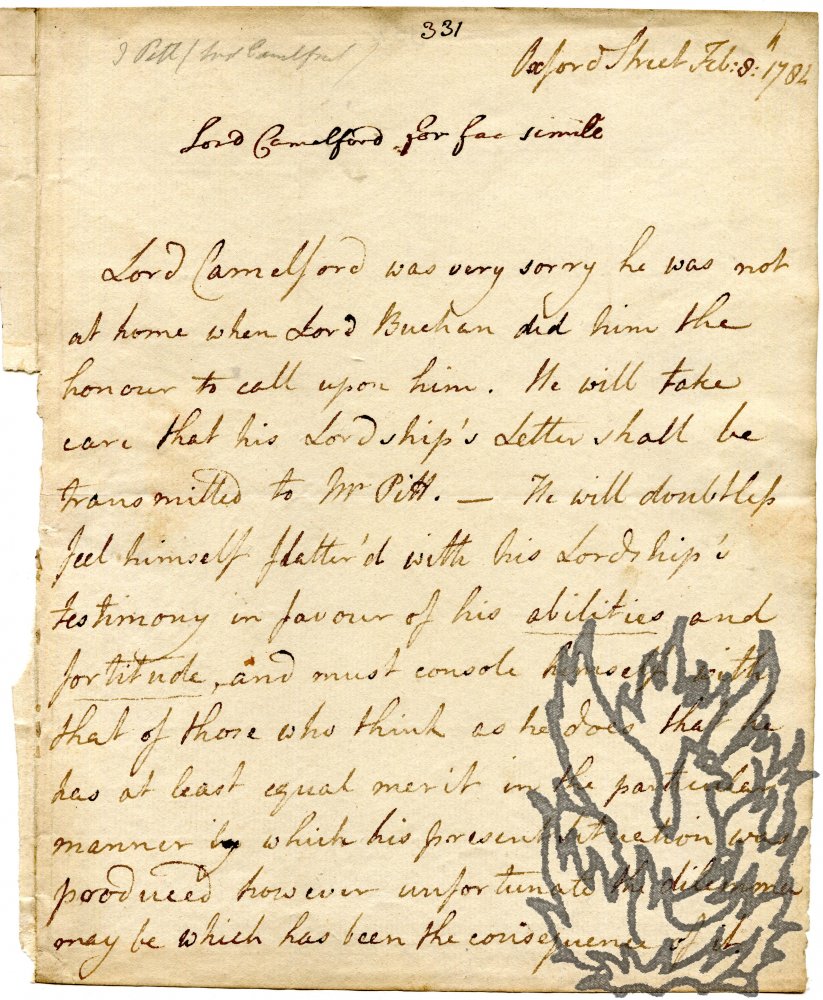 331
Oxford Street Feb: 8:th 1784
Lord Camelford for fac simile
Lord Camelford was very sorry he was not
at home when Lord Buchan did him the
honour to call upon him. He will take
care that his Lordship's Letter shall be
transmitted to Mr Pitt. — He will doubtless
feel himself flatter'd with his Lordship's
testimony in favour of his abilities and
fortitude, and must console himself with
that of those who think as he does that he
has at least equal merit in the particular
manner by which his present situation was
produced however unfortunate the dilemma
may be which has been the consequence of it.